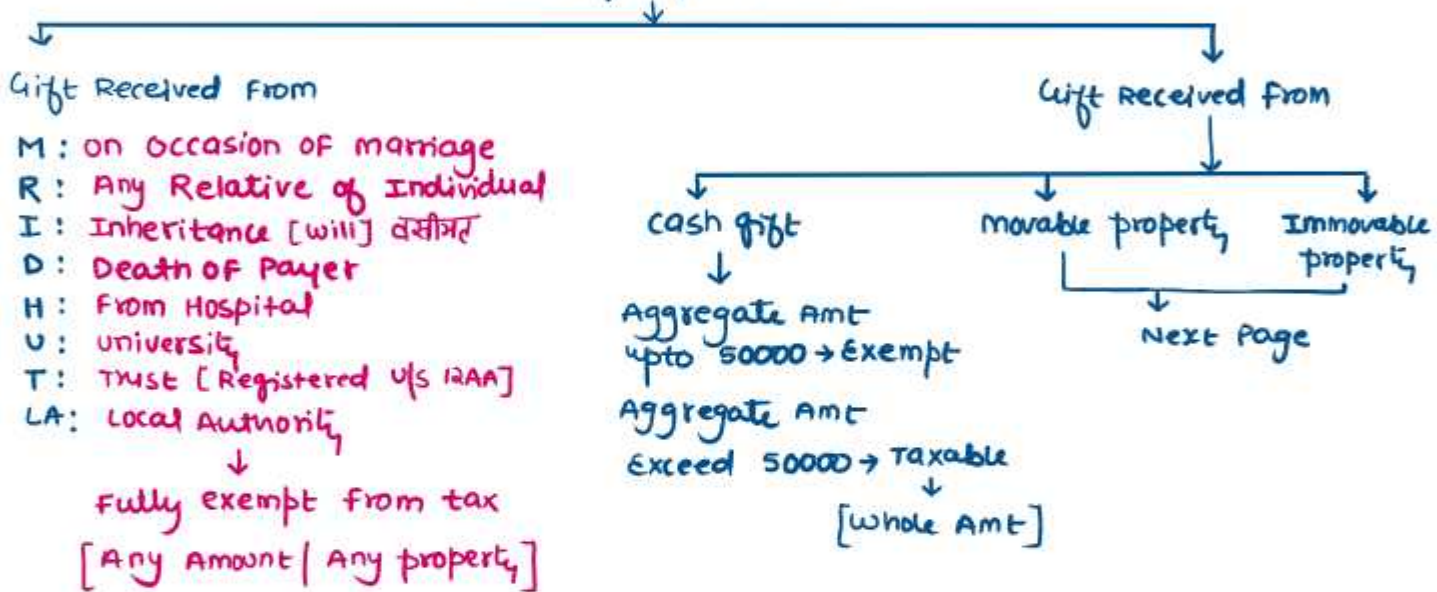 Gift Received From
M: on occasion of marriage
R: Any Relative of Individual
I: Inheritance [will] वसीयत
D: Death of Payer
H: From Hospital
U: university
T: Trust [Registered u/s 12AA]
LA: Local Authority
Fully exempt from tax
[Any Amount | Any property]
Gift Received from
cash gift
Aggregate Amt
upto 50000 → Exempt
Aggregate Amt
Exceed 50000 → Taxable
[whole Amt]
movable property
Immovable
property
Next Page